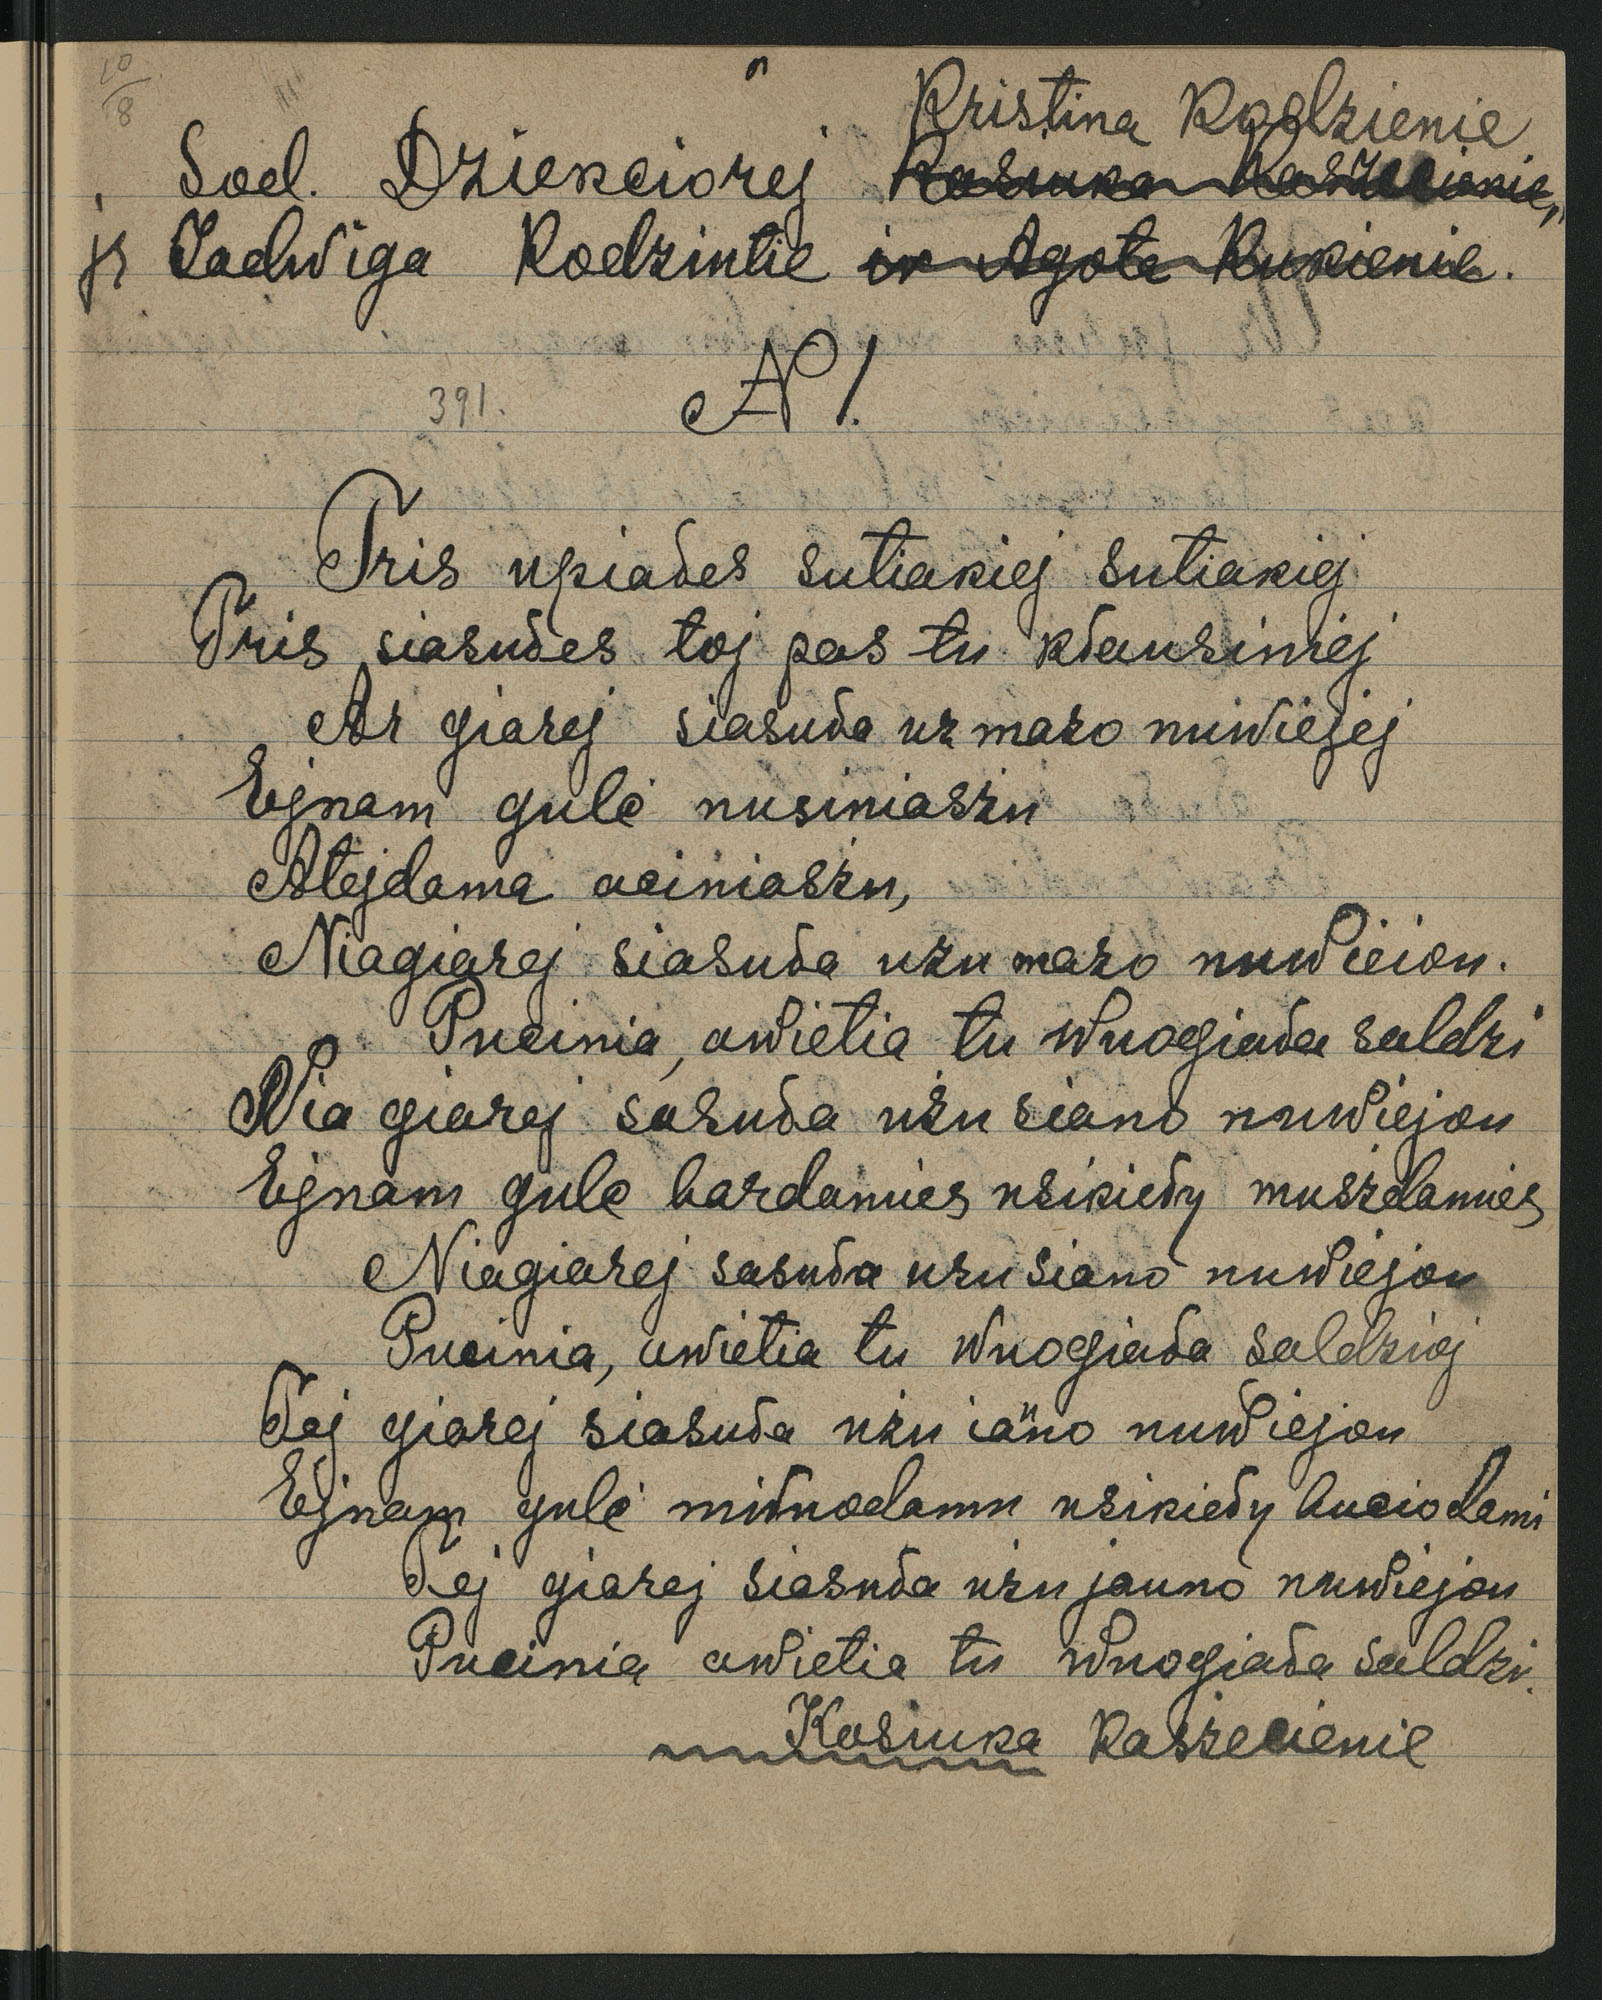 10
8
Kristina Rodzienie
Sod. Dziekciorej Kasiuka Kaszecienie,
jr Jadwiga Rodzintie ir Agota Rukienie.
391. N 1.
Tris upiałes sutiakiej sutiakiej
Tris siasułes toj pas tu kłausiniej
Ar giarej siasuła uz mazo nuwiejej
Ejnam gulć nusiniaszu
Atejdama aciniaszu,
Niagiarej siasuła uzu mazo nuwieiou.
Pucinia, awietia tu wuogiała saldzi
Nia giarej sasuła użu siano nuwiejou
Ejnam gulć bardamies usikieły muszdamies
Niagiarej sasuła uzu siano nuwiejou
Pucinia, awietia tu wuogiała saldziej
Tej giarej siasuła użu iauno nuwiejou
Ejnam gulć miłuodamu usikieły buciodami
Tej giarej siasuła uzu jauno nuwiejou
Pucinia awietia tu wuogiała saldzi.
Kasiuka Kaszecienie